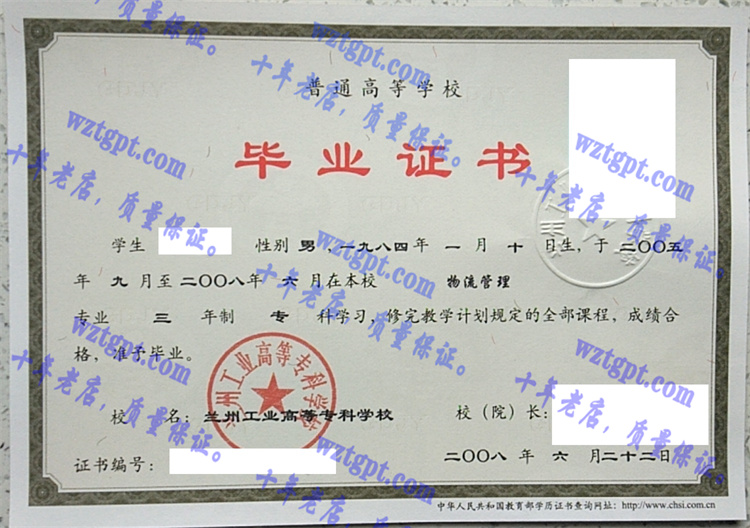 普通高等学校
毕业证书
学生 性别 男，一九八四年 一 月 十 日生，于 二〇〇五
年 九 月至 二〇〇八年 六 月在本校 物流管理
专业 三 年制 专 科学习，修完教学计划规定的全部课程，成绩合
格，准予毕业。
兰州工业高等专科学校
校 名：兰州工业高等专科学校 校（院）长：
证书编号： 二〇〇八 年 六 月二十二日
中华人民共和国教育部学历证书查询网址：http://www.chsi.com.cn
wztgpt.com
十年老店，质量保证。
wztgpt.com
十年老店，质量保证。
wztgpt.com
十年老店，质量保证。
wztgpt.com
十年老店，质量保证。
wztgpt.com
十年老店，质量保证。
wztgpt.com
十年老店，质量保证。
wztgpt.com
十年老店，质量保证。
wztgpt.com
十年老店，质量保证。